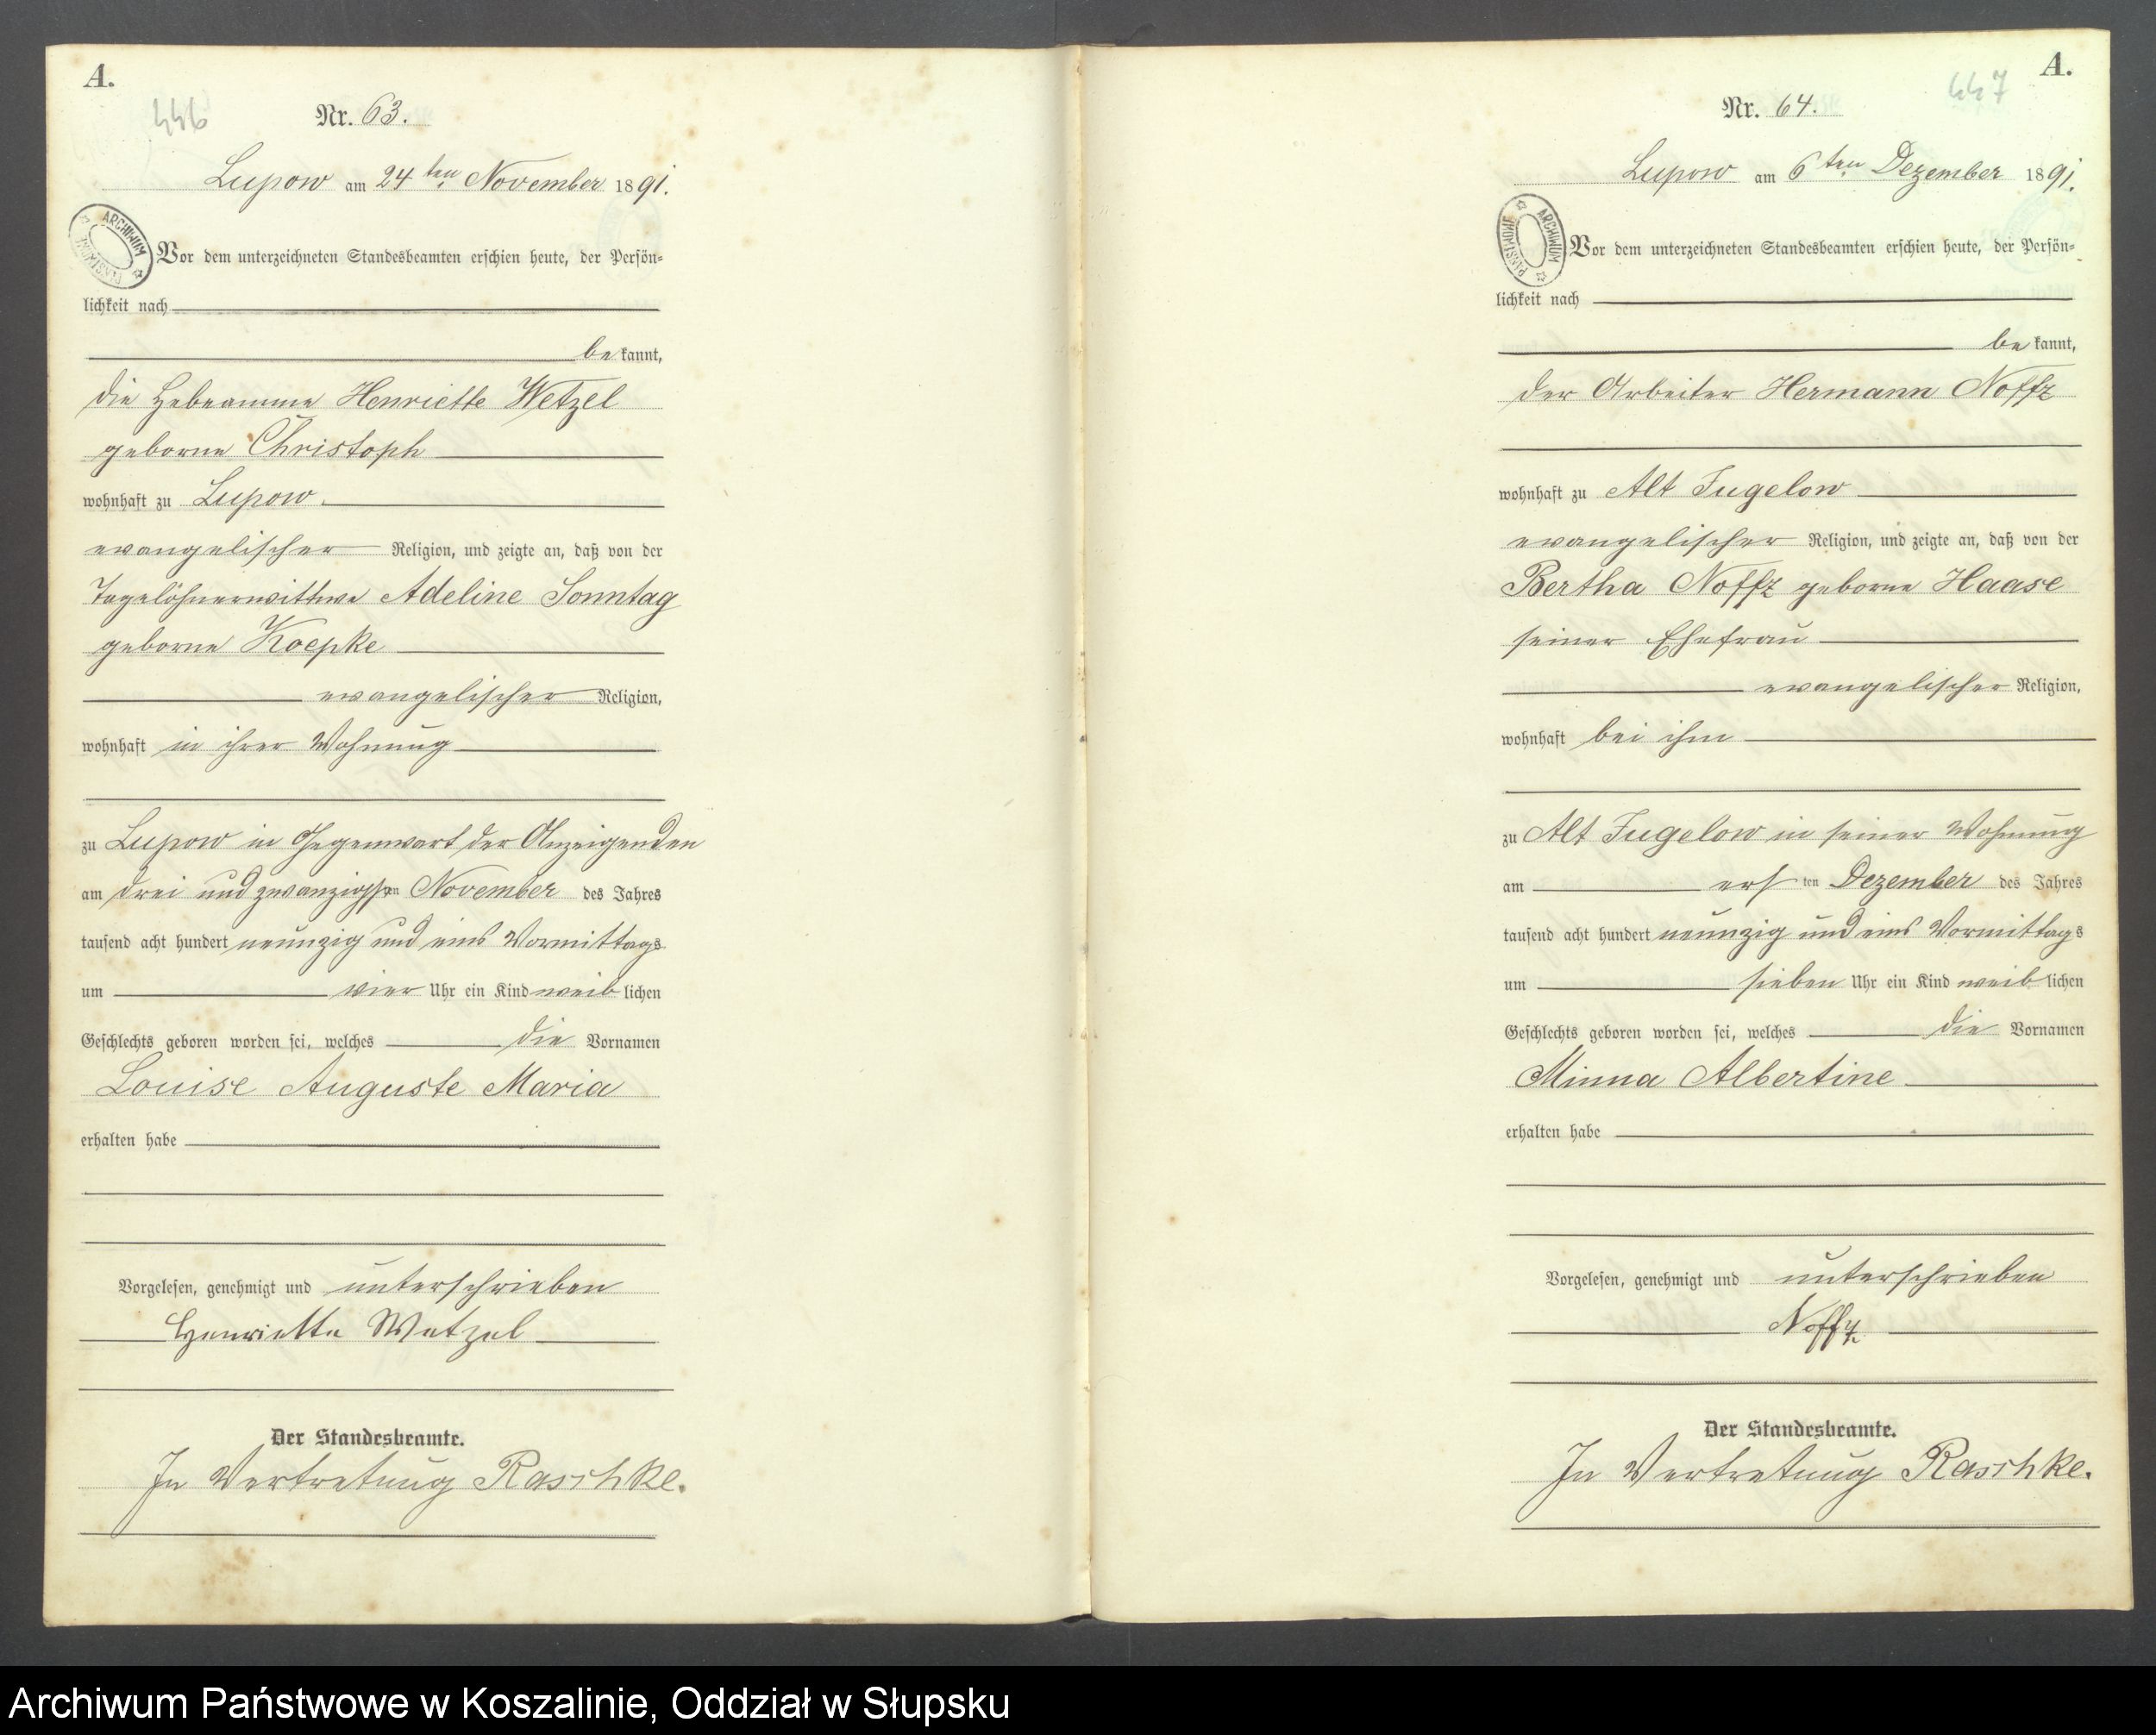 A.
446
Nr. 63.
Lupow am 24ten November 1891.
ARCHIWUM PAŃSTWOWE
Vor dem unterzeichneten Standesbeamten erschien heute, der Persön-
lichkeit nach
bekannt,
die Hebeamme Henriette Wetzel
geborne Christoph
wohnhaft zu Lupow.
evangelischer Religion, und zeigte an, daß von der
Tagelöhnerwittwe Adeline Sonntag
geborne Koepke
evangelischer Religion,
wohnhaft in ihrer Wohnung
zu Lupow in Gegenwart der Anzeigenden
am drei und zwanzigsten November des Jahres
tausend acht hundert neunzig und eins Vormittags
um vier Uhr ein Kind weiblichen
Geschlechts geboren worden sei, welches die Vornamen
Louise Auguste Maria
erhalten habe
Vorgelesen, genehmigt und unterschrieben
Henriette Wetzel
Der Standesbeamte.
In Vertretung Raschke.
A.
447
Nr. 64.
Lupow am 6ten Dezember 1891.
ARCHIWUM PAŃSTWOWE
Vor dem unterzeichneten Standesbeamten erschien heute, der Persön-
lichkeit nach
bekannt,
der Arbeiter Hermann Noffz
wohnhaft zu Alt Jugelow
evangelischer Religion, und zeigte an, daß von der
Bertha Noffz geborne Haase
seiner Ehefrau
evangelischer Religion,
wohnhaft bei ihm
zu Alt Jugelow in seiner Wohnung
am ersten Dezember des Jahres
tausend acht hundert neunzig und eins Vormittags
um sieben Uhr ein Kind weiblichen
Geschlechts geboren worden sei, welches die Vornamen
Minna Albertine
erhalten habe
Vorgelesen, genehmigt und unterschrieben
Noffz
Der Standesbeamte.
In Vertretung Raschke.
Archiwum Państwowe w Koszalinie, Oddział w Słupsku